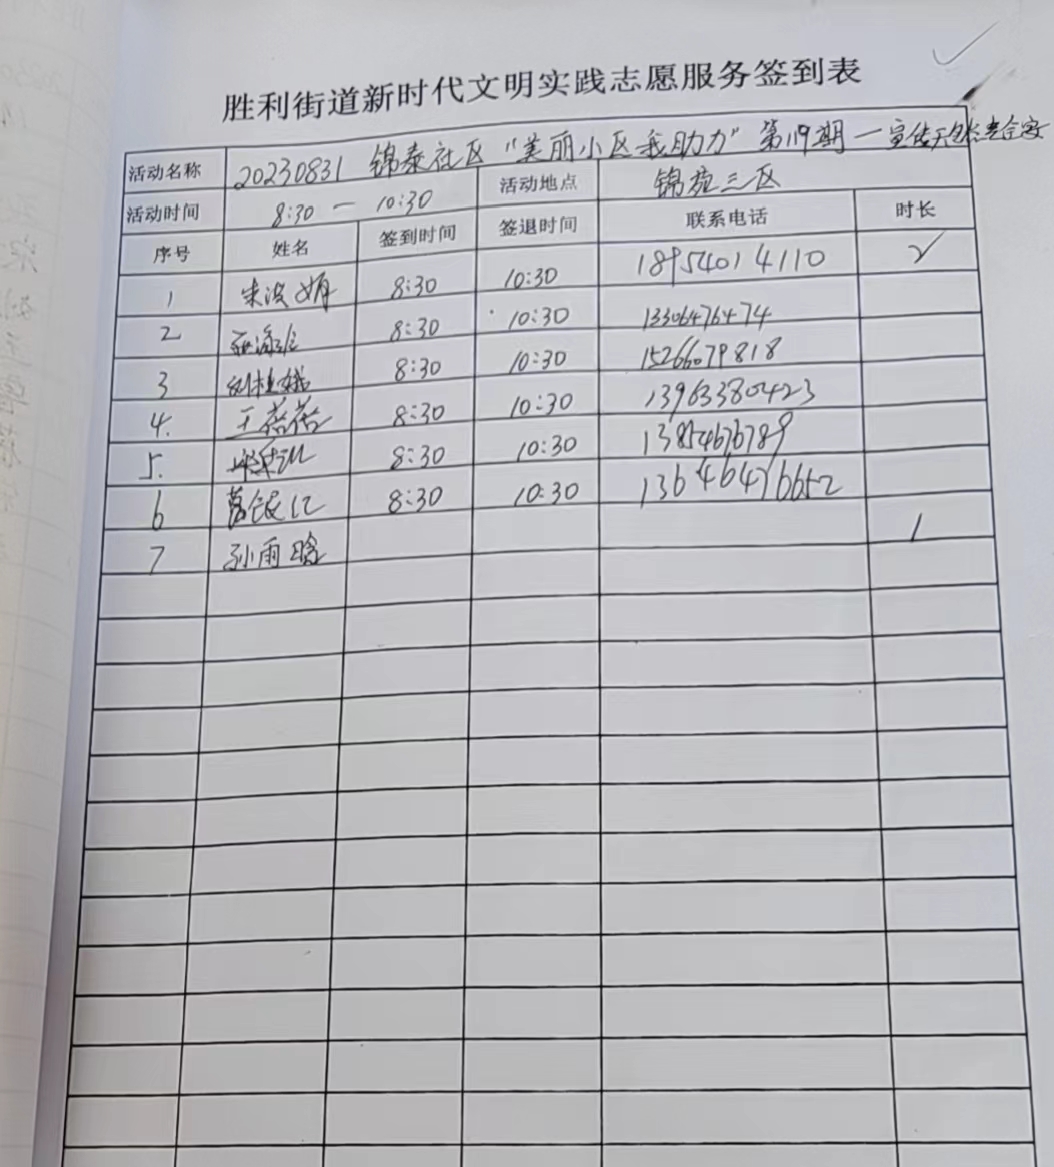 胜利街道新时代文明实践志愿服务签到表
活动名称 20230831 锦泰社区“美丽小区我助力”第119期—宣传天然气安全
活动时间 8:30 — 10:30 活动地点 锦苑三区
序号 姓名 签到时间 签退时间 联系电话 时长
1 朱波娟 8:30 10:30 18954014110 2
2 8:30 10:30 13306476474
3 刘桂娥 8:30 10:30 15266079818
4. 王蓓蓓 8:30 10:30 13963380423
5. 8:30 10:30 13854676789
6 葛银仁 8:30 10:30 13646476652
7 孙雨晗 1